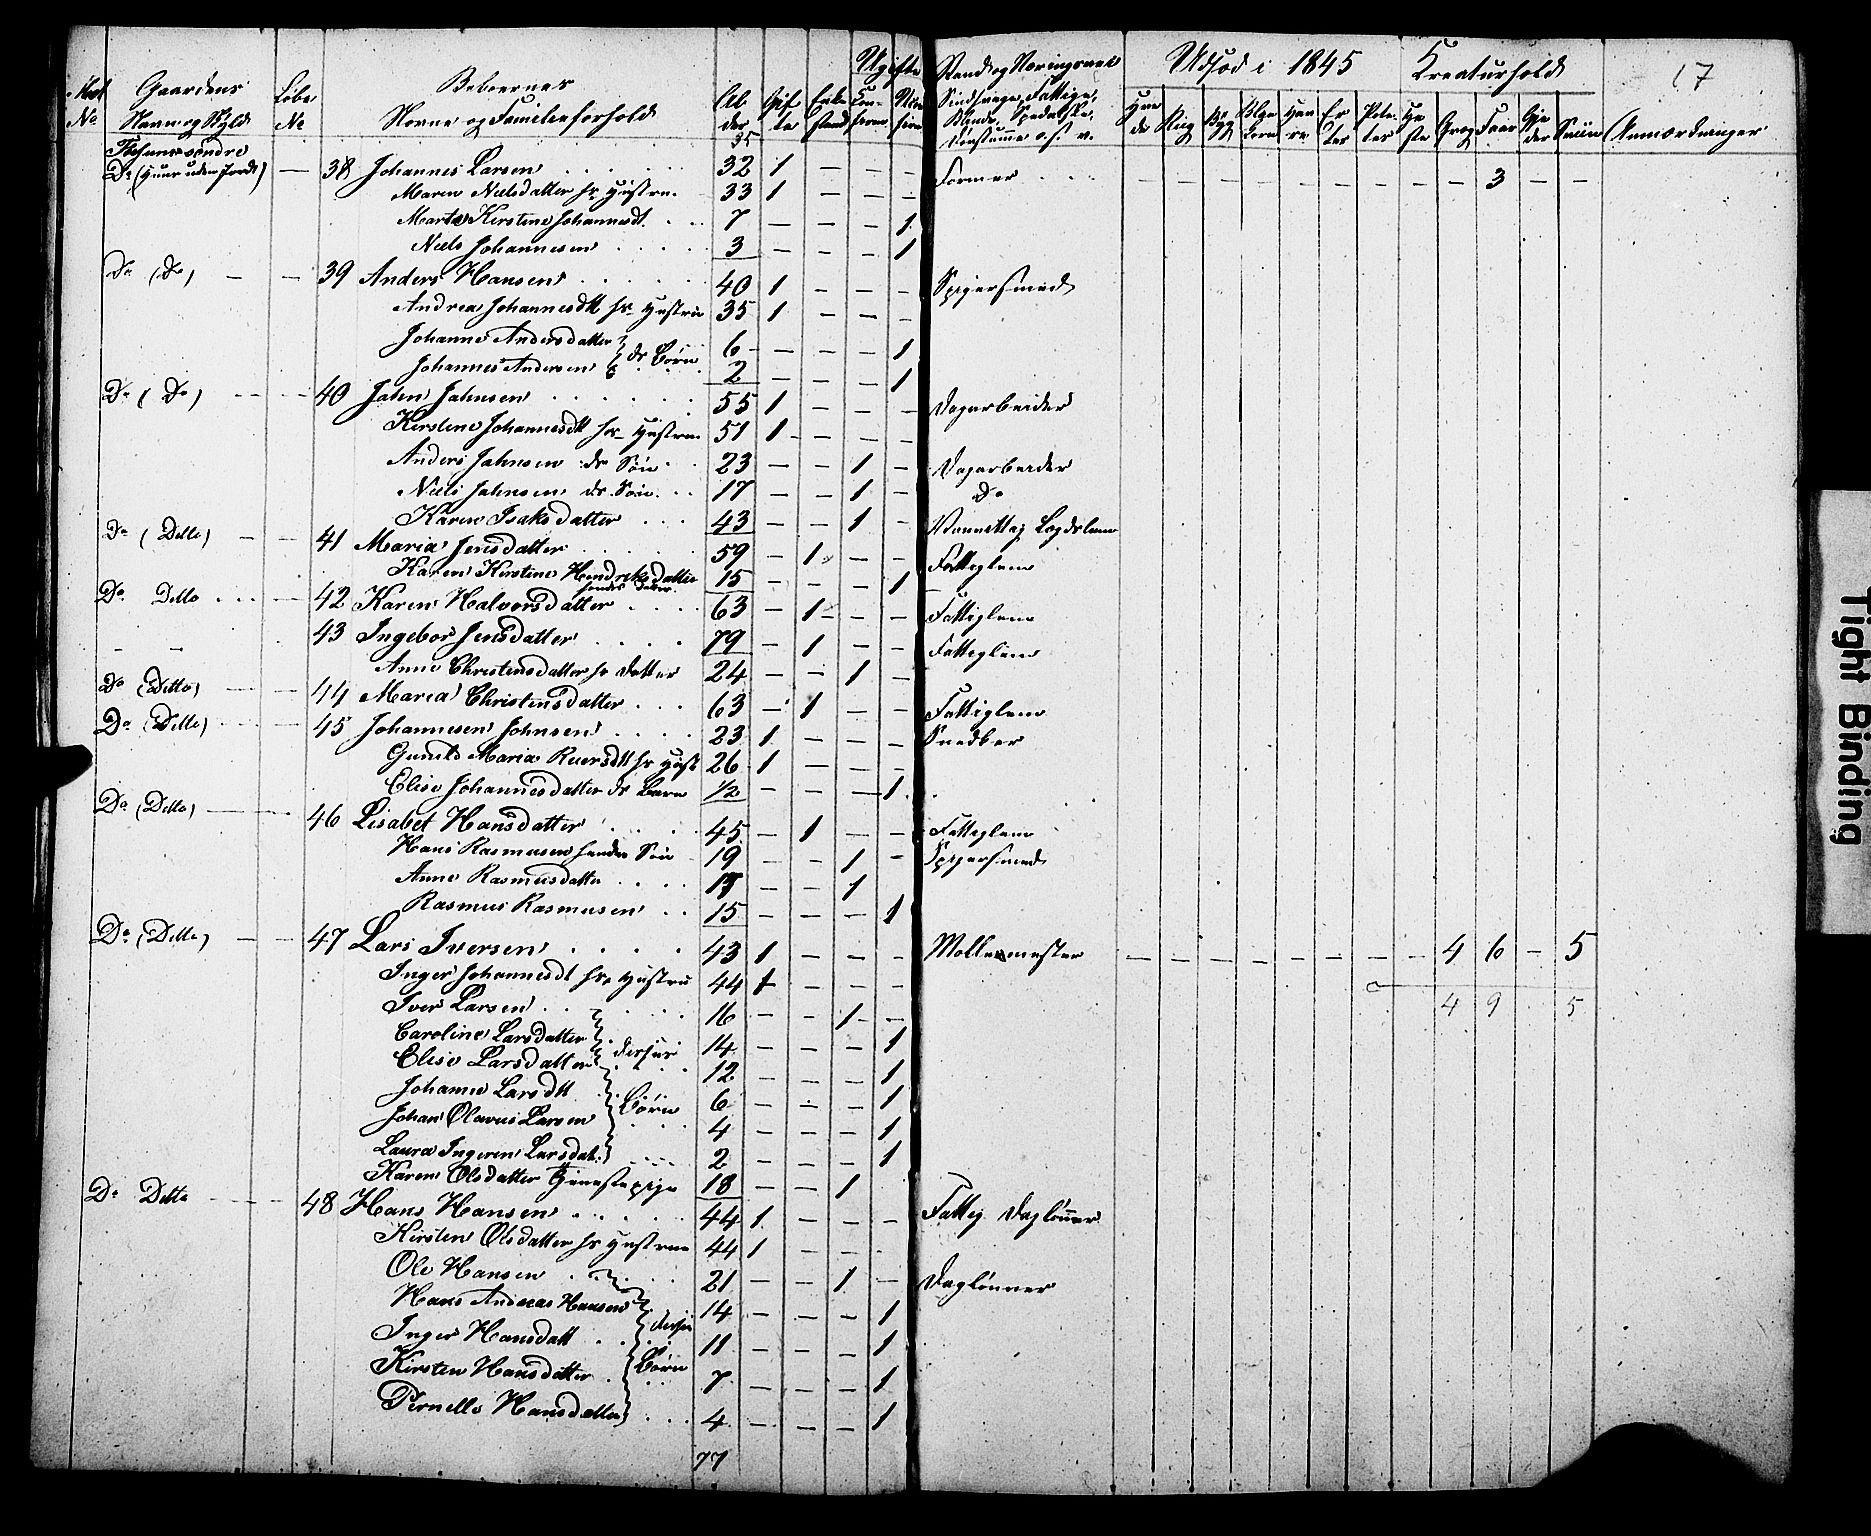 17
Matr No | Gaardens Navn og Skyld | Löbe No | Beboernes Navne og Familieforhold | Al der | Gif te | Enke stand | Ugifte Con firm | Ugifte Ucon firm | Stand og Næringsvei Sindsvage, Fattige, Blinde, Spedalske, Døvstumme o.s.v. | Udsæd i 1845 | Hve de | Rug | Byg | Blge korn | Hav re | Er ter | Pota ter | Kreaturhold | He ste | Qvæg | Faar | Gje der | Sviin | Anmærkninger
35
Do (Huus uden Jord) — 38 Johannes Larsen 32 1 — — — Former — — — — — — — — — 3 — —
Maren Nielsdatter hs Hustru 33 1 — — —
Marte Kirstine Johannesdt. 7 — — — 1
Niels Johannesen 3 — — — 1
Do (Do) — — 39 Anders Hansen 40 1 — — — Spigersmed
Andrea Johannesdtt hs Hustru 35 1 — — —
Johanne Andersdatter } ds Børn 6 — — — 1
Johannes Andersen 2 — — — 1
Do (Do) — — 40 Jahn Jahnsen 55 1 — — — Dagarbeider
Kirstine Johannesdtt hs Hustru 51 1 — — —
Anders Jahnsen ds Søn 23 — — 1 — Dagarbeider
Niels Jahnsen ds Søn 17 — — 1 — Do
Karen Isaksdatter 43 — — 1 — Vanvittig Lægdslem
Do (Ditto) — — 41 Maria Jensdatter 59 — 1 — — Fattiglem
Karen Kirstine Hendriksdatter 15 — — — 1
hendes Datter
Do Ditto — 42 Karen Halvorsdatter 63 — 1 — — Fattiglem
— — 43 Ingebor Jensdatter 79 — 1 — — Fattiglem
Anne Christensdatter hs Datter 24 — — 1 —
Do (Ditto) — — 44 Maria Christensdatter 63 — 1 — — Fattiglem
Do (Ditto) — 45 Johannesen Johnsen 23 1 — — — Snedker
Gunild Maria Ruersdtt hs Hust 26 1 — — —
Elise Johannesdatter ds Barn 1/2 — — — 1
Do (Ditto) — 46 Lisabet Hansdatter 45 — 1 — — Fattiglem
Hans Rasmusen hendes Søn 19 — — 1 — Spigersmed
Anne Rasmusdatter — — 1
Rasmus Rasmusen 15 — — — 1
Do (Ditto) — — 47 Lars Iversen 43 1 — — — Møllemester — — — — — — — — 4 6 — 5
Inger Johannesdt hs Hustru 44 1 — — —
4 9 5
Iver Larsen 16 — — 1 —
Caroline Larsdatter 14 — — — 1
Elise Larsdatter } derses 12 — — — 1
Johanne Larsdtt 6 — — — 1
Johan Olavus Larsen } Børn 4 — — — 1
Laura Ingeren Larsdat. 2 — — — 1
Karen Olsdatter Tjenestepige 18 — — 1
Do Ditto — 48 Hans Hansen 44 1 — — — Fattig Daglønner
Kirsten Olsdatter hs Hustrue 44 1 — — —
Ole Hansen 21 — — 1 — Daglønner
Hans Andreas Hansen 14 — — — 1
Inger Hansdatt } derses 11 — — — 1
Kirsten Hansdatter } Børn 7 — — — 1
Pernelle Hansdatter 4 — — — 1
77
Tight Binding